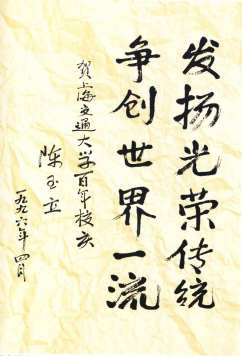 发扬光荣传统
争创世界一流
賀上海交通大学百年校庆
陈玉立
一九九六年四月